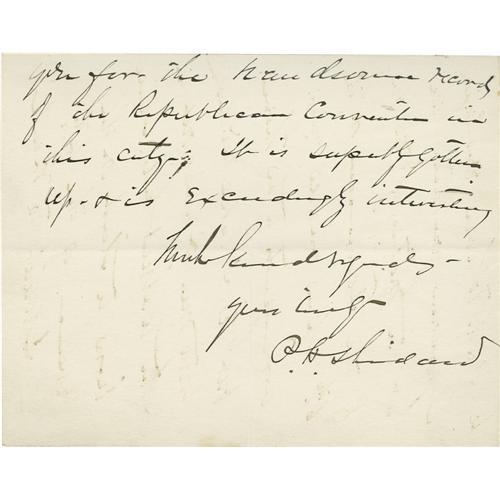 you for the handsome record
of the Republican Convention in
this city; It is superbly gotten
up - & is exceedingly interesting
With kind regards -
yours truly
P. H. Sheridan